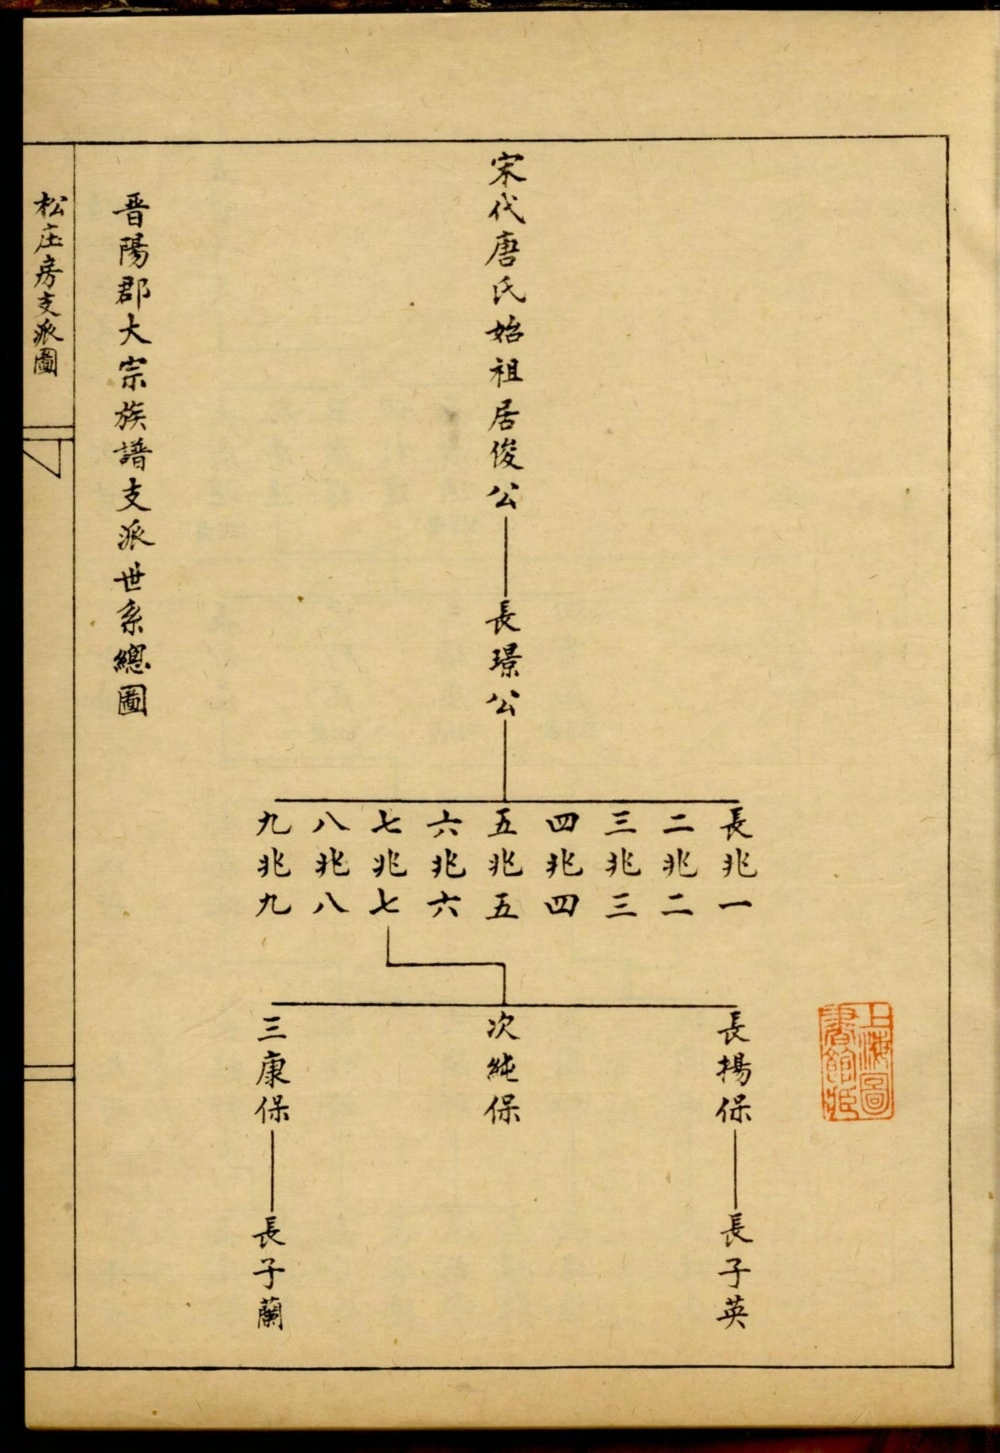 宋代唐氏始祖居俊公
長璟公
長兆一
二兆二
三兆三
四兆四
五兆五
六兆六
七兆七
八兆八
九兆九
長揚保
次純保
三康保
長子英
長子蘭
晋陽郡大宗族譜支派世系總圖
松庄房支派圖
上海圖書館藏